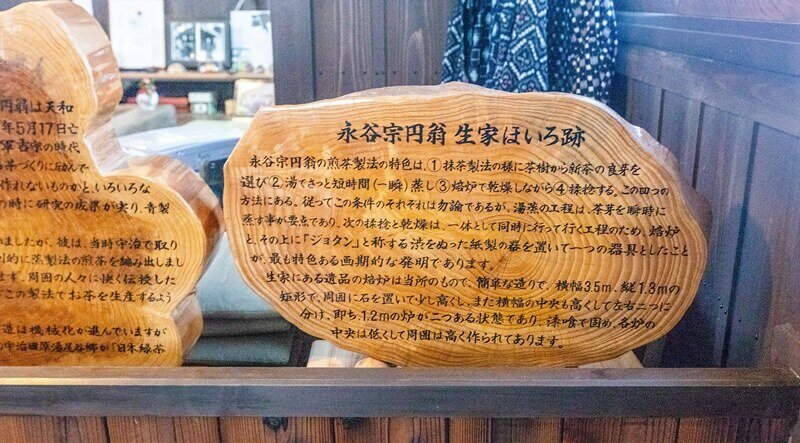 円翁は天和
年5月17日亡
軍吉宗の時代
茶づくりに励んで
作れないものかと、いろいろな
の時に研究の成果が実り、青製
ましたが、彼は、当時宇治で取り
的に蒸製法の煎茶を編み出しまし
ず、周囲の人々に快く伝授した
この製法でお茶を生産するよう
造は機械化が進んでいますが
宇治田原湯屋谷郷が「日本緑茶
永谷宗円翁 生家ほいろ跡
永谷宗円翁の煎茶製法の特色は、①抹茶製法の様に茶樹から新茶の良芽を
選び②湯でさっと短時間(一瞬)蒸し③焙炉で乾燥しながら④揉捻する。この四つの
方法にある。従ってこの条件のそれぞれは勿論であるが、湯蒸の工程は、茶芽を瞬時に
蒸す事が要点であり、次の揉捻と乾燥は、一体として同時に行って行く工程のため、焙炉
と、その上に「ジョタン」と称する渋をぬった紙製の器を置いて一つの器具としたこと
が、最も特色ある画期的な発明であります。
生家にある遺品の焙炉は当所のもので、簡単な造りで、横幅3.5m、縦1.8mの
矩形で、周囲に石を置いて少し高くし、また横幅の中央も高くして左右二つに
分け、即ち、1.2mの炉が二つある状態であり、漆喰で固め、各炉の
中央は低くして周囲は高く作られてあります。